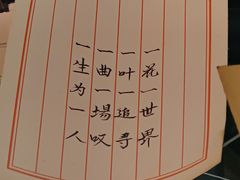 一花一世界
一叶一追寻
一曲一場叹
一生为一人